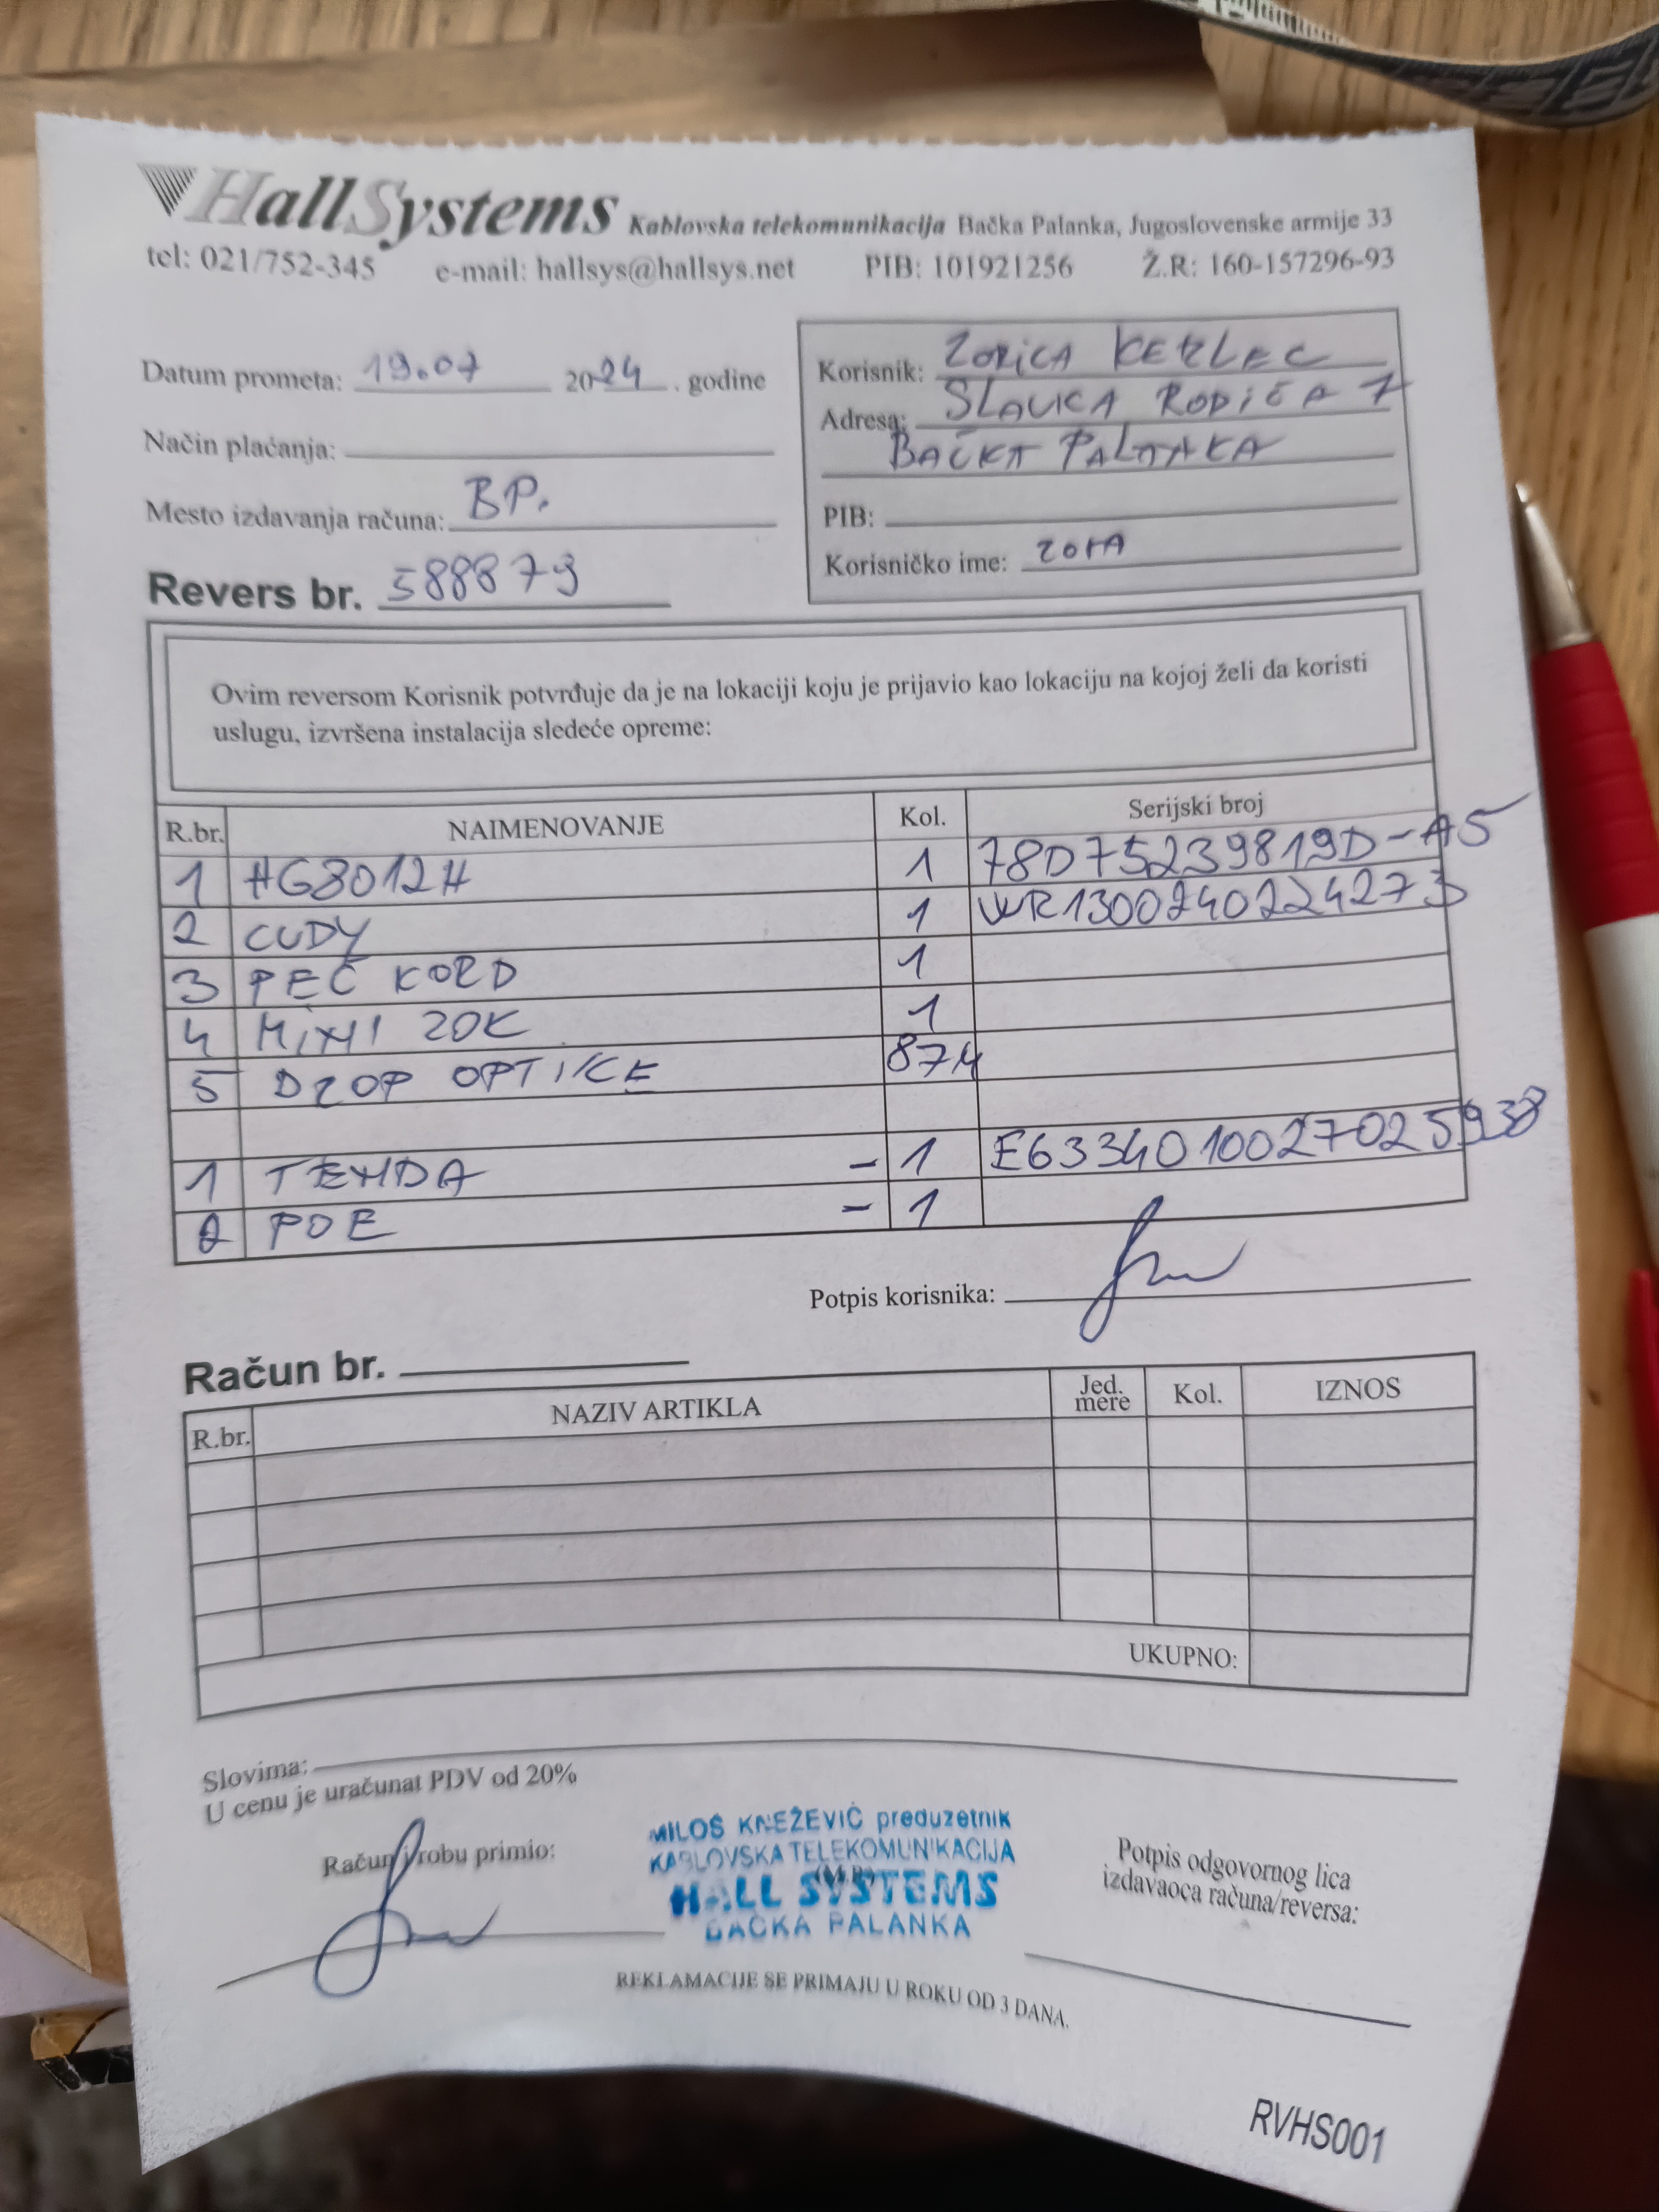 HallSystems Kablovska telekomunikacija Bačka Palanka, Jugoslovenske armije 33
tel: 021/752-345 e-mail: hallsys@hallsys.net PIB: 101921256 Ž.R: 160-157296-93
Datum prometa: 19.07 2024. godine
Način plaćanja:
Mesto izdavanja računa: BP.
Revers br. 588879
Korisnik: ZORICA KERLEC
Adresa: SLAVKA RODIĆA 7
BAČKA PALANKA
PIB:
Korisničko ime: ZORA
Ovim reversom Korisnik potvrđuje da je na lokaciji koju je prijavio kao lokaciju na kojoj želi da koristi
uslugu, izvršena instalacija sledeće opreme:
R.br. NAIMENOVANJE Kol. Serijski broj
1 HG8012H 1 78D75239819D-A5
2 CUDY 1 WR1300240224273
3 PEČ KORD 1
4 MINI ZOK 1
5 DROP OPTIKE 87M
1 TENDA - 1 E6334010027025938
2 POE - 1
Potpis korisnika:
Račun br.
R.br. NAZIV ARTIKLA Jed. mere Kol. IZNOS
UKUPNO:
Slovima:
U cenu je uračunat PDV od 20%
Račun i robu primio:
MILOŠ KNEŽEVIĆ preduzetnik
KABLOVSKA TELEKOMUNIKACIJA
(M.P.)
HALL SYSTEMS
BAČKA PALANKA
Potpis odgovornog lica
izdavaoca računa/reversa:
REKLAMACIJE SE PRIMAJU U ROKU OD 3 DANA.
RVHS001